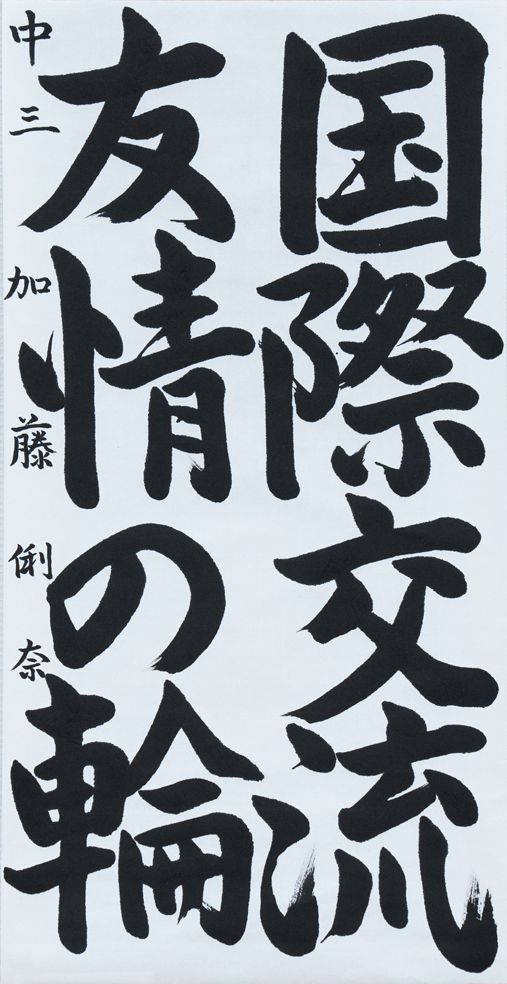 国際交流
友情の輪
中三 加藤俐奈